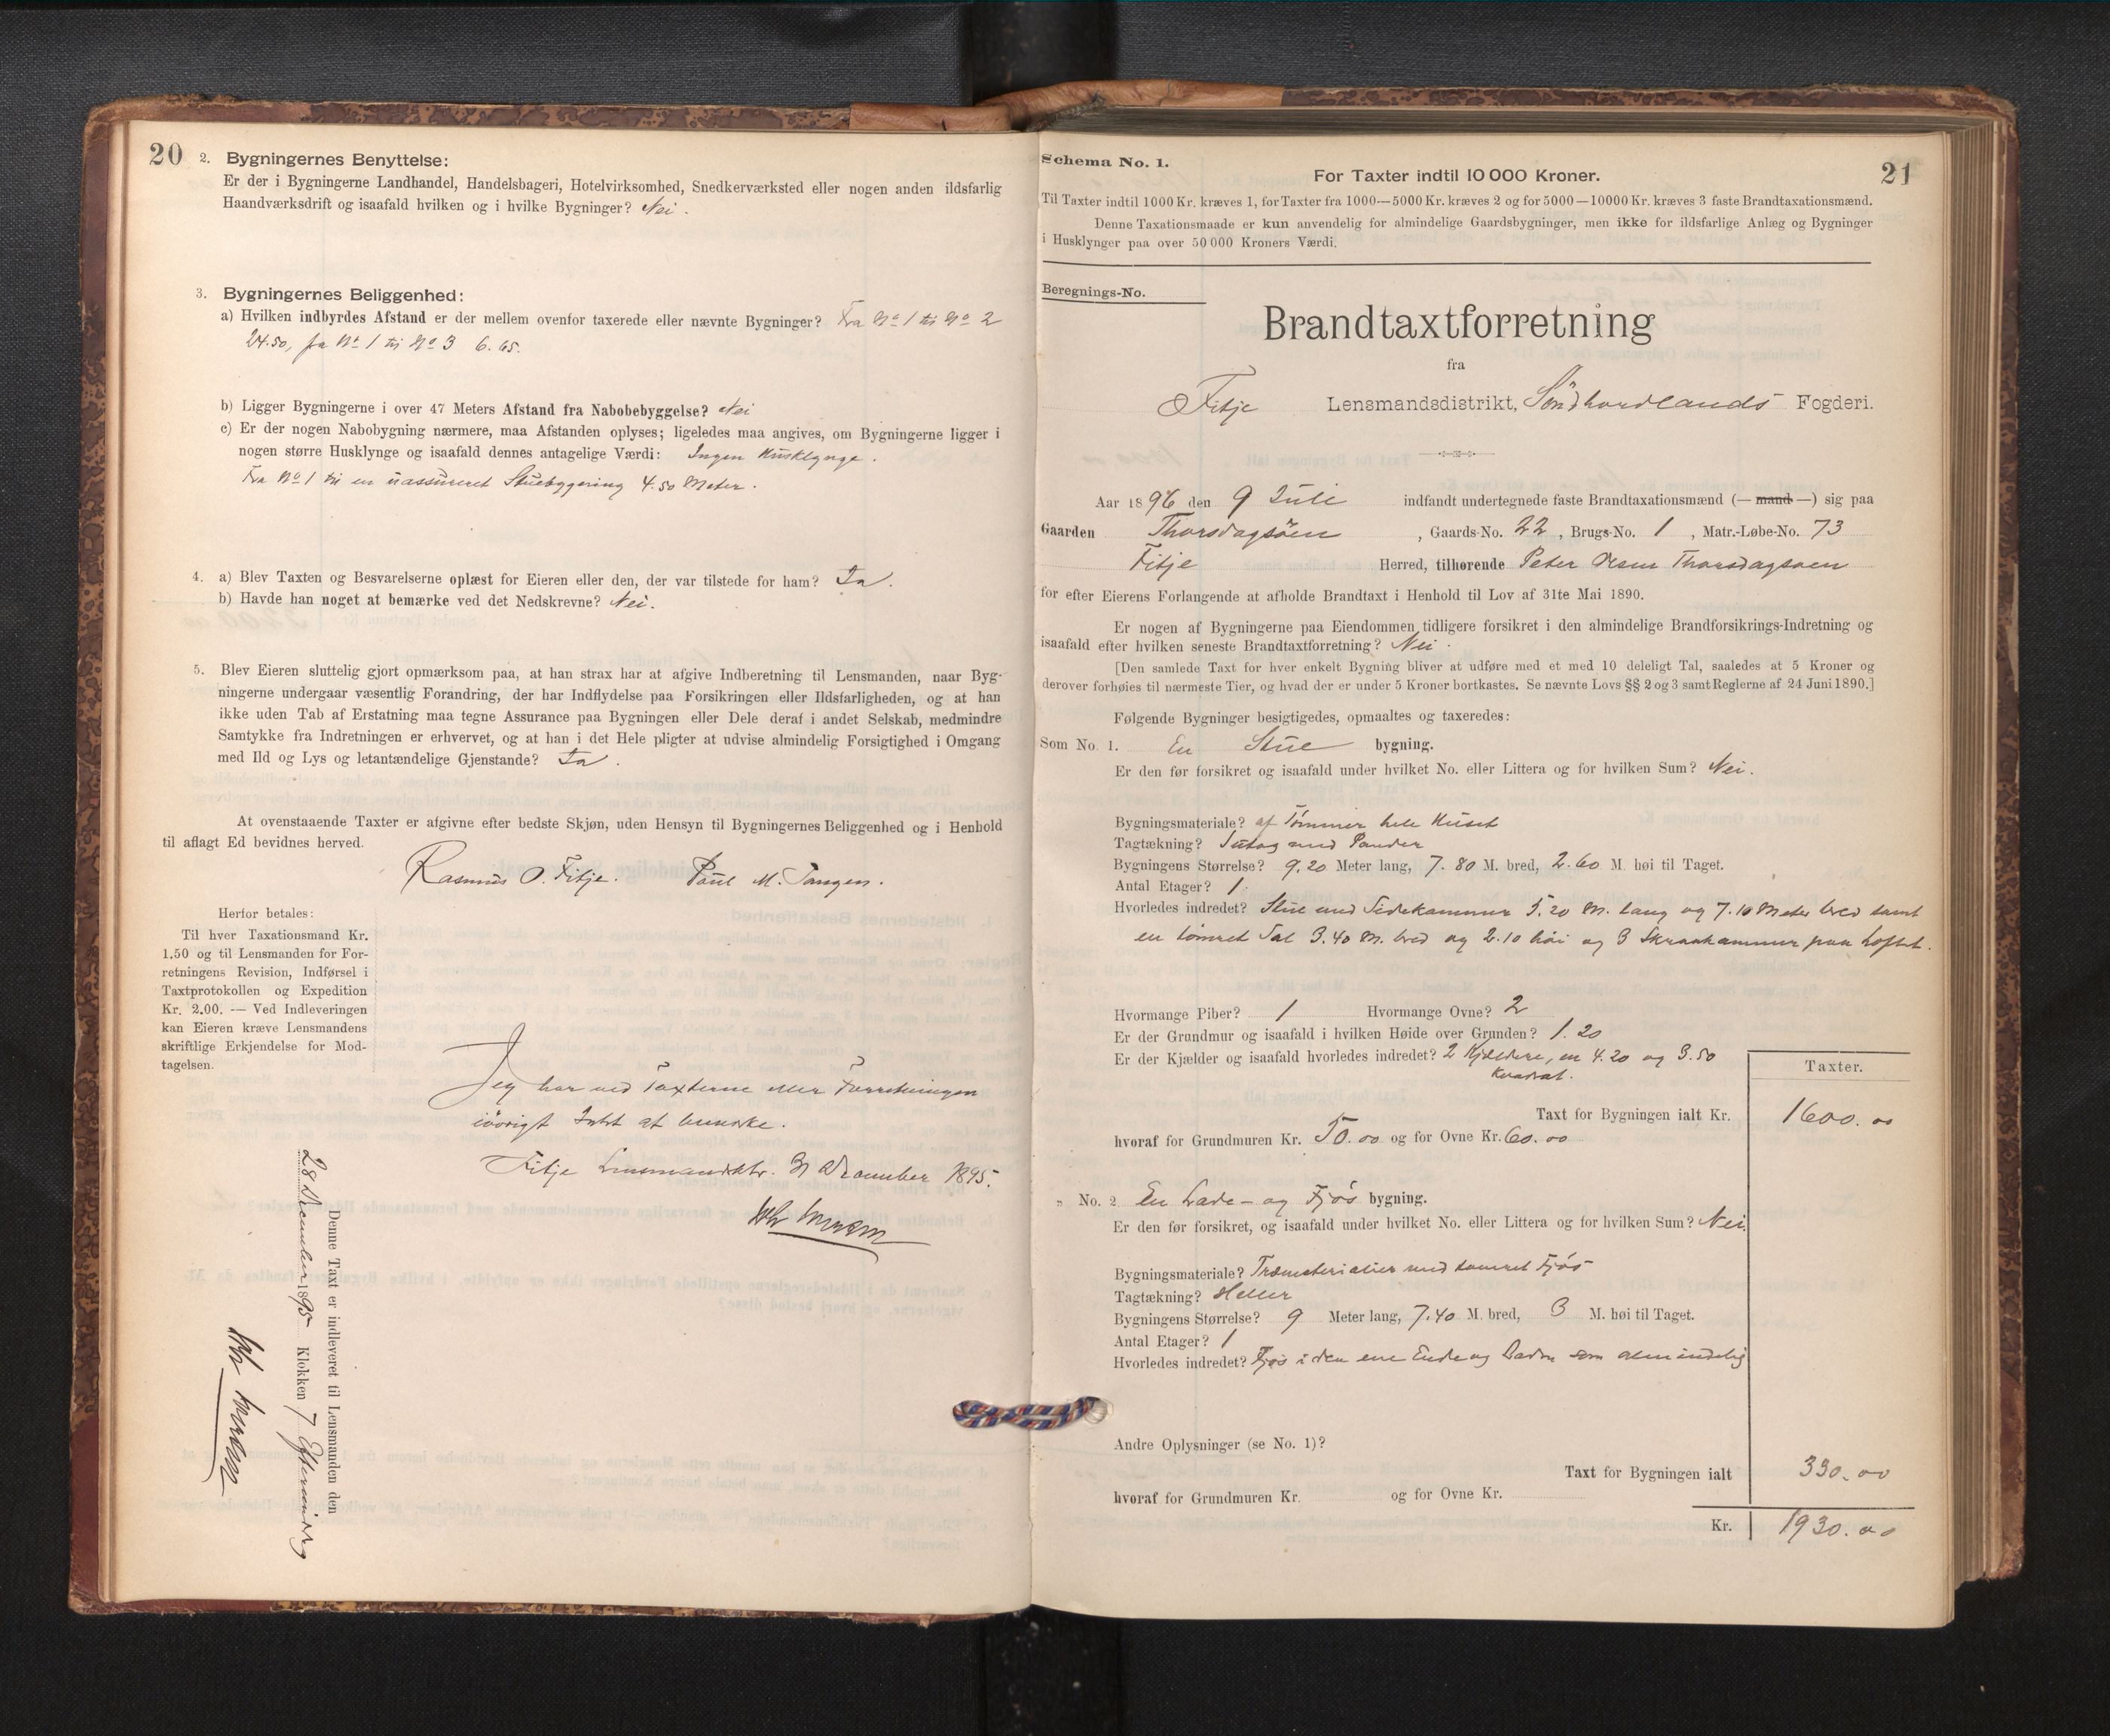 20
2. Bygningernes Benyttelse:
Er der i Bygningerne Landhandel, Handelsbageri, Hotelvirksomhed, Snedkerværksted eller nogen anden ildsfarlig
Haandværksdrift og isaafald hvilken og i hvilke Bygninger? Nei.
3. Bygningernes Beliggenhed:
a) Hvilken indbyrdes Afstand er der mellem ovenfor taxerede eller nævnte Bygninger? Fra No 1 til No 2
24.50, fra No 1 til No 3 6.65.
b) Ligger Bygningerne i over 47 Meters Afstand fra Nabobebyggelse? Nei
c) Er der nogen Nabobygning nærmere, maa Afstanden oplyses; ligeledes maa angives, om Bygningerne ligger i
nogen større Husklynge og isaafald dennes antagelige Værdi: Ingen Husklynge.
Fra No 1 til en uassureret Stuebygning 4.50 Meter.
4. a) Blev Taxten og Besvarelserne oplæst for Eieren eller den, der var tilstede for ham? Ja.
b) Havde han noget at bemærke ved det Nedskrevne? Nei.
5. Blev Eieren sluttelig gjort opmærksom paa, at han strax har at afgive Indberetning til Lensmanden, naar Byg-
ningerne undergaar væsentlig Forandring, der har Indflydelse paa Forsikringen eller Ildsfarligheden, og at han
ikke uden Tab af Erstatning maa tegne Assurance paa Bygningen eller Dele deraf i andet Selskab, medmindre
Samtykke fra Indretningen er erhvervet, og at han i det Hele pligter at udvise almindelig Forsigtighed i Omgang
med Ild og Lys og letantændelige Gjenstande? Ja.
At ovenstaaende Taxter er afgivne efter bedste Skjøn, uden Hensyn til Bygningernes Beliggenhed og i Henhold
til aflagt Ed bevidnes herved.
Rasmus O. Fitje. Poul M. Tangen.
Herfor betales:
Til hver Taxationsmand Kr.
1.50 og til Lensmanden for For-
retningens Revision, Indførsel i
Taxtprotokollen og Expedition
Kr. 2.00. — Ved Indleveringen
kan Eieren kræve Lensmandens
skriftlige Erkjendelse for Mod-
tagelsen.
Jeg har ved Taxterne eller Forretningen
iøvrigt Intet at bemærke.
Fitje Lensmandsktr. 31 December 1895.
Denne Taxt er indleveret til Lensmanden den
28 December 1895 Klokken 7 Eftermiddag
21
Schema No. 1.
For Taxter indtil 10 000 Kroner.
Til Taxter indtil 1000 Kr. kræves 1, for Taxter fra 1000—5000 Kr. kræves 2 og for 5000—10000 Kr. kræves 3 faste Brandtaxationsmænd.
Denne Taxationsmaade er kun anvendelig for almindelige Gaardsbygninger, men ikke for ildsfarlige Anlæg og Bygninger
i Husklynger paa over 50 000 Kroners Værdi.
Beregnings-No.
Brandtaxtforretning
fra
Fitje Lensmandsdistrikt, Söndhordlands Fogderi.
Aar 1896 den 9 Juli indfandt undertegnede faste Brandtaxationsmænd (— mand —) sig paa
Gaarden Thorsdagsöen, Gaards-No. 22, Brugs-No. 1, Matr.-Løbe-No. 73
Fitje Herred, tilhørende Peter Olsen Thorsdagsoen
for efter Eierens Forlangende at afholde Brandtaxt i Henhold til Lov af 31te Mai 1890.
Er nogen af Bygningerne paa Eiendommen tidligere forsikret i den almindelige Brandforsikrings-Indretning og
isaafald efter hvilken seneste Brandtaxtforretning? Nei.
[Den samlede Taxt for hver enkelt Bygning bliver at udføre med et med 10 deleligt Tal, saaledes at 5 Kroner og
derover forhøies til nærmeste Tier, og hvad der er under 5 Kroner bortkastes. Se nævnte Lovs §§ 2 og 3 samt Reglerne af 24 Juni 1890.]
Følgende Bygninger besigtigedes, opmaaltes og taxeredes:
Som No. 1. En Stue bygning.
Er den før forsikret og isaafald under hvilket No. eller Littera og for hvilken Sum? Nei.
Bygningsmateriale? af Tømmer hele Huset
Tagtækning? Sutag med Pander
Bygningens Størrelse? 9.20 Meter lang, 7.80 M. bred, 2.60 M. høi til Taget.
Antal Etager? 1.
Hvorledes indredet? Stue med Sidekammer 5.20 M. lang og 7.10 Meter bred samt
en tömret Sal 3.40 M. bred og 2.10 høi og 3 Skraakammer paa Loftet.
Hvormange Piber? 1 Hvormange Ovne? 2
Er der Grundmur og isaafald i hvilken Høide over Grunden? 1.20
Er der Kjælder og isaafald hvorledes indredet? 2 Kjeldere, en 4.20 og 3.50
Kvadrat.
Taxter.
Taxt for Bygningen ialt Kr. 1600.00
hvoraf for Grundmuren Kr. 50.00 og for Ovne Kr. 60.00
„ No. 2 En Lade- og Fjös bygning.
Er den før forsikret, og isaafald under hvilket No. eller Littera og for hvilken Sum? Nei
Bygningsmateriale? Træmaterialier med tømret Fjös
Tagtækning? Heller
Bygningens Størrelse? 9 Meter lang, 7.40 M. bred, 3 M. høi til Taget.
Antal Etager? 1
Hvorledes indredet? Fjøs i den ene Ende og Laden som almindelig
Andre Oplysninger (se No. 1)?
Taxt for Bygningen ialt 330.00
hvoraf for Grundmuren Kr. og for Ovne Kr.
Kr. 1930.00